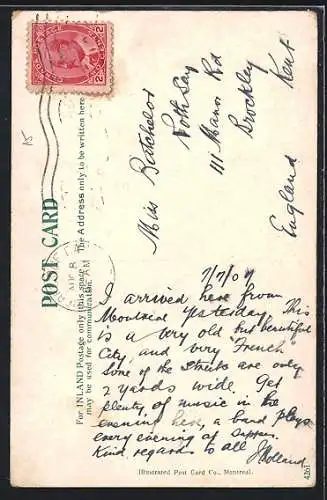 CANADA POSTAGE
2 CENTS 2
15
POST CARD
For INLAND Postage only this space
may be used for communication.
The Address only to be written here
Miss Batchelor
Rothsay
111 Manor Rd
Brockley
Kent
England
7/7/07
I arrived here from
Montreal yesterday. This
is a very old but beautiful
City, and very "French"
Some of the streets are only
2 yards wide. Get
plenty of music in the
evening here, a band plays
every evening at supper.
Kind regards to all
Holland
Illustrated Post Card Co., Montreal.
4261